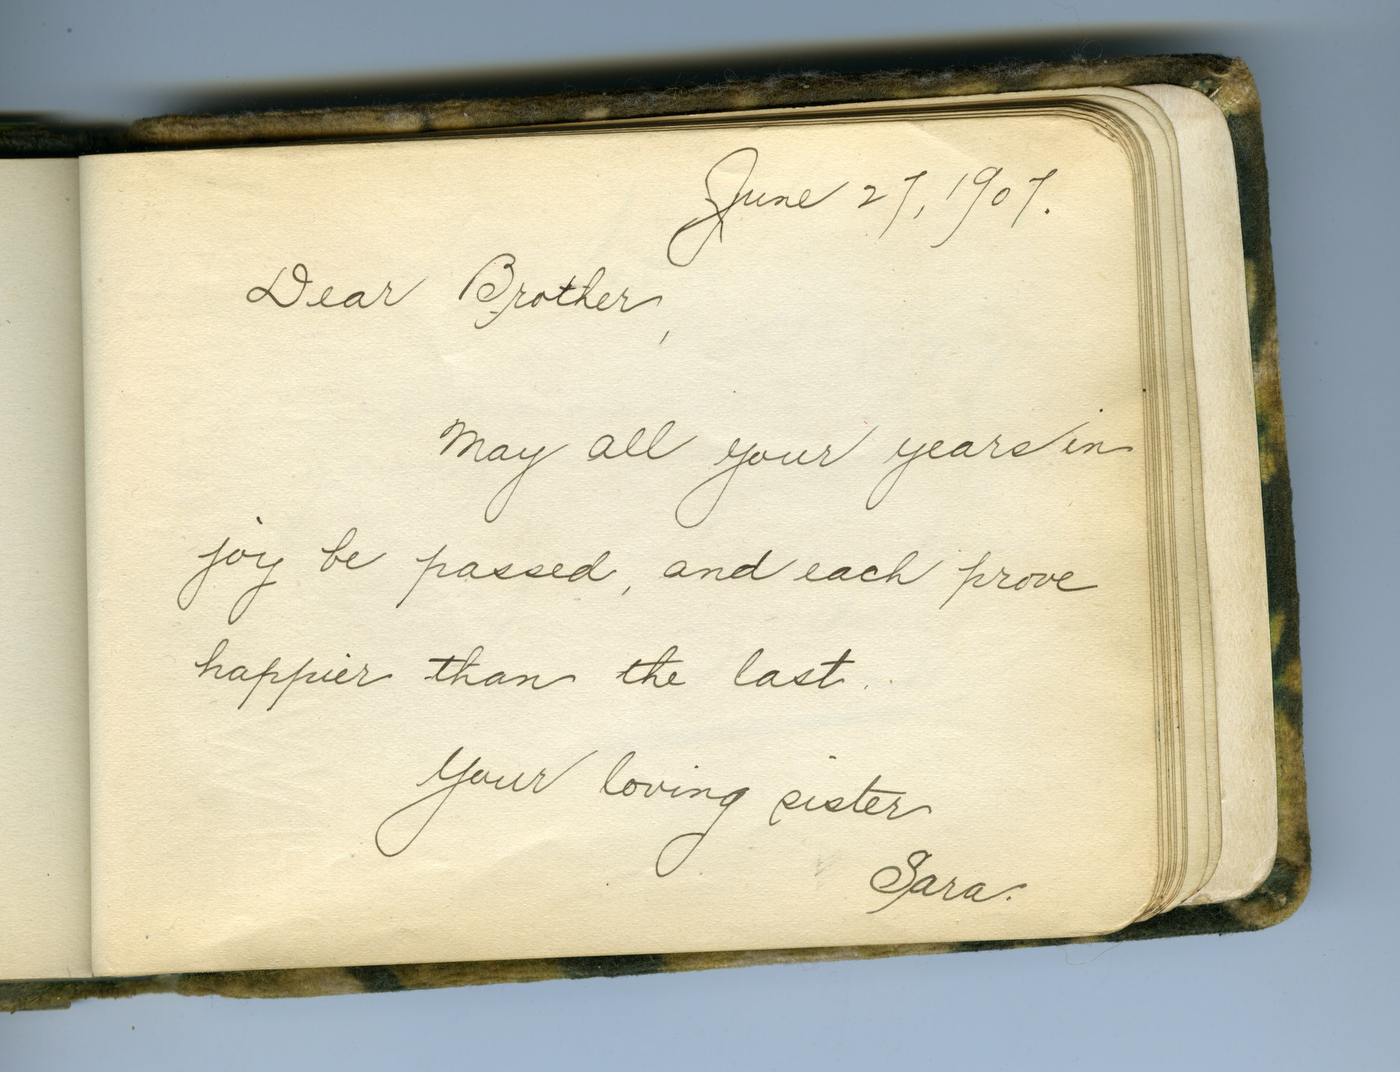 June 27, 1907.
Dear Brother,
May all your years in
joy be passed, and each prove
happier than the last.
Your loving sister
Sara.